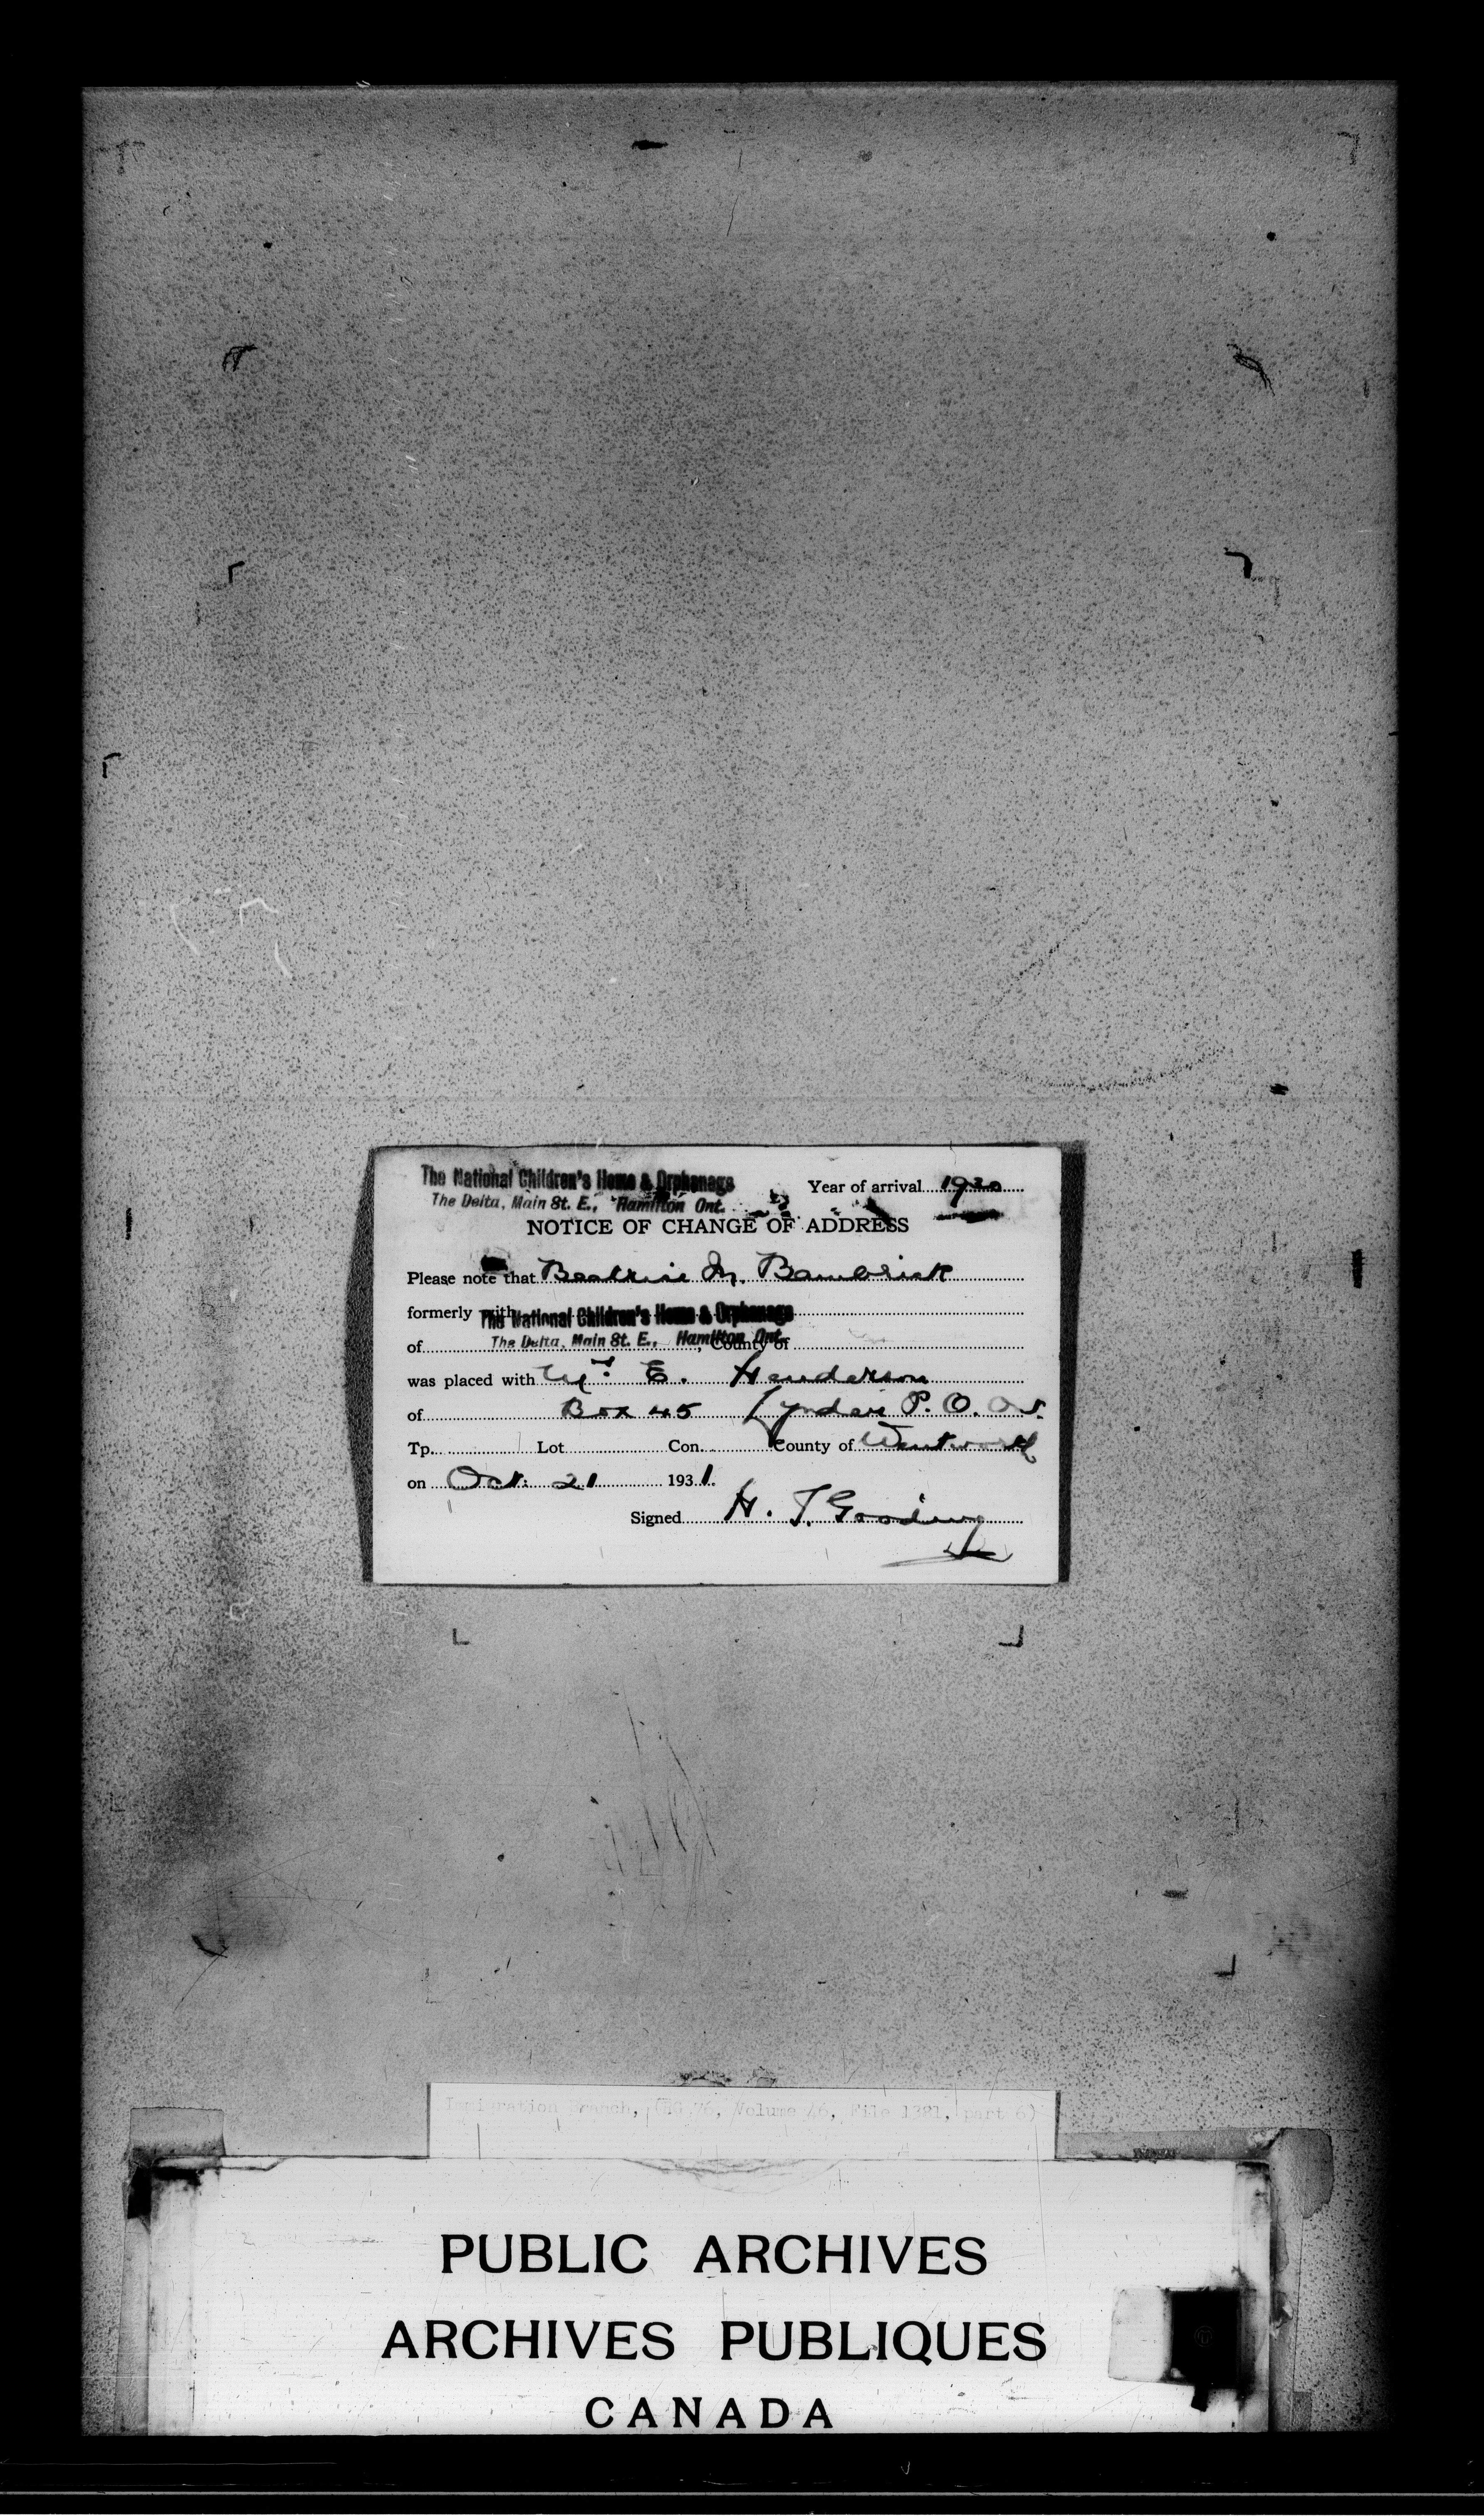 The National Children's Home & Orphanage
The Delta, Main St. E., Hamilton Ont.
Year of arrival 1920
NOTICE OF CHANGE OF ADDRESS
Please note that Beatrice M. Bambrick
formerly with The National Children's Home & Orphanage
of The Delta, Main St. E., Hamilton Ont., County of
was placed with E. Henderson
of Box 45 Lynden P. O. Ont.
Tp. Lot Con. County of Wentworth
on Oct. 21 1931.
Signed H. J. Gooding
Immigration Branch, (RG 76, Volume 46, File 1381, part 6)
PUBLIC ARCHIVES
ARCHIVES PUBLIQUES
CANADA